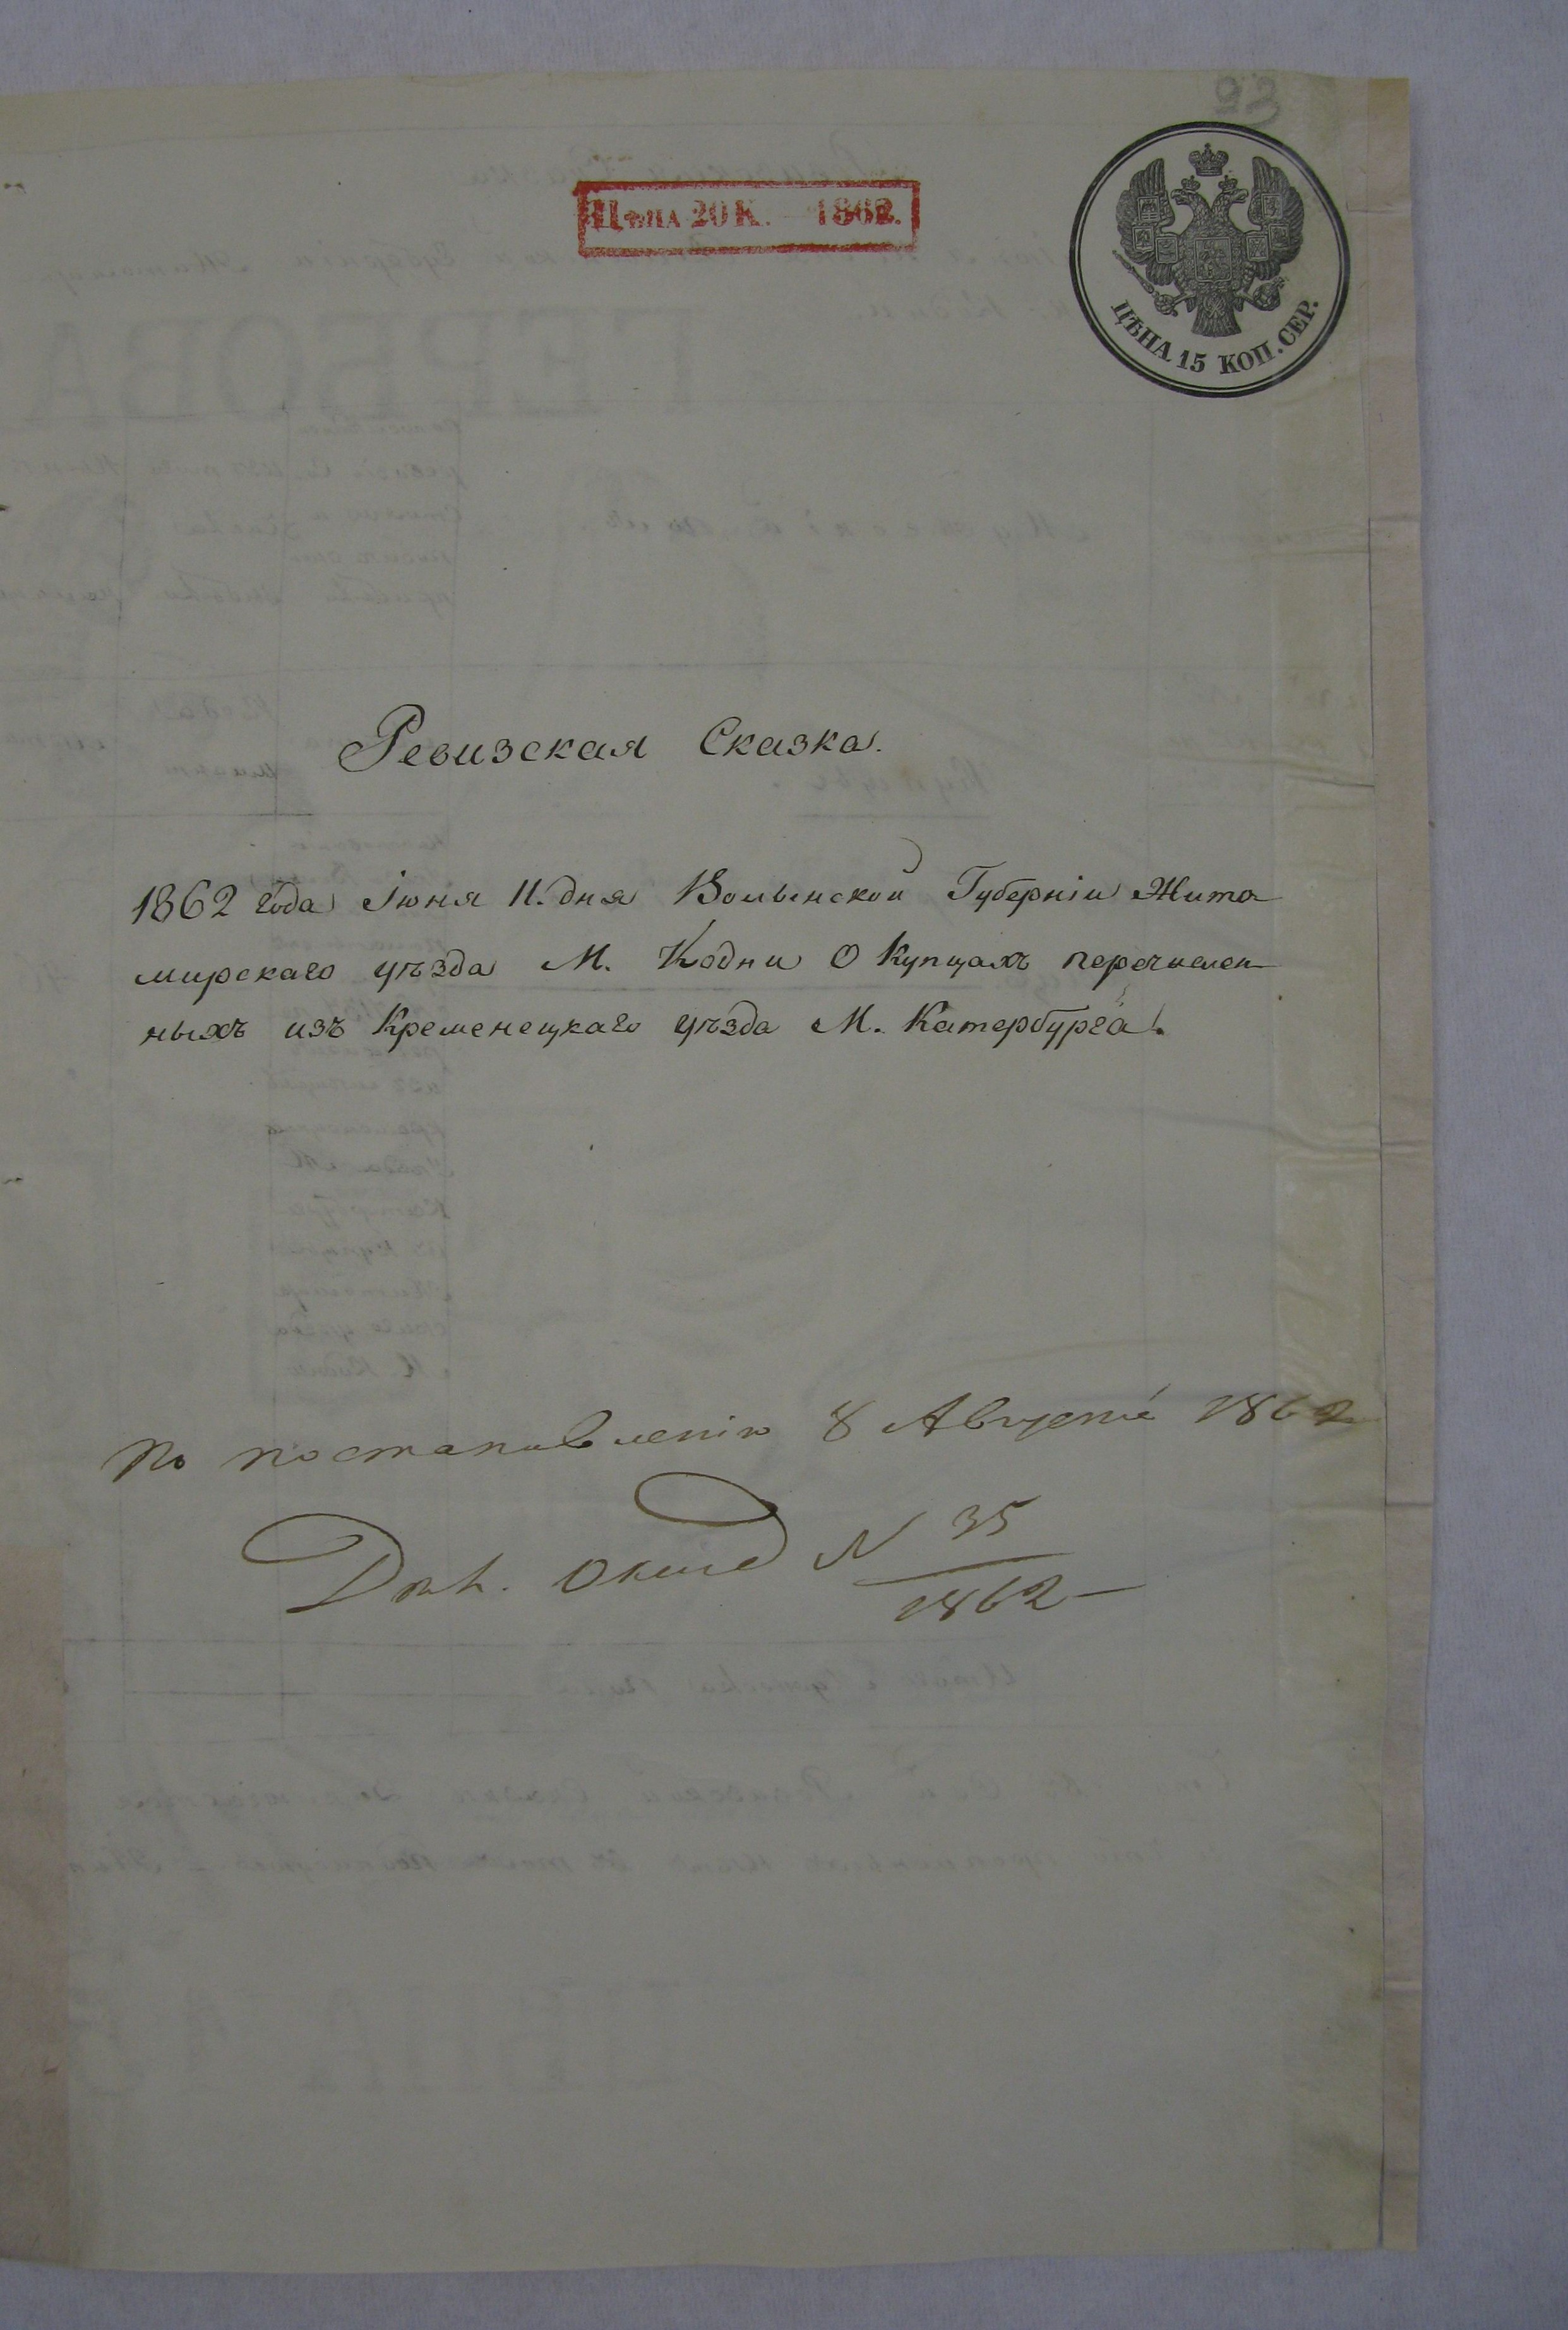 93
ЦѢНА 20 К. 1862.
ЦѢНА 15 КОП. СЕР.
Ревизская Сказка.
1862 года Іюня 11. дня Волынской Губерніи Жито-
мирскаго уѣзда М. Кодни О Купцахъ перечислен-
ныхъ изъ Кременецкаго уѣзда М. Катербурга.
По постановленію 8 Августа 1862
N 35
1862